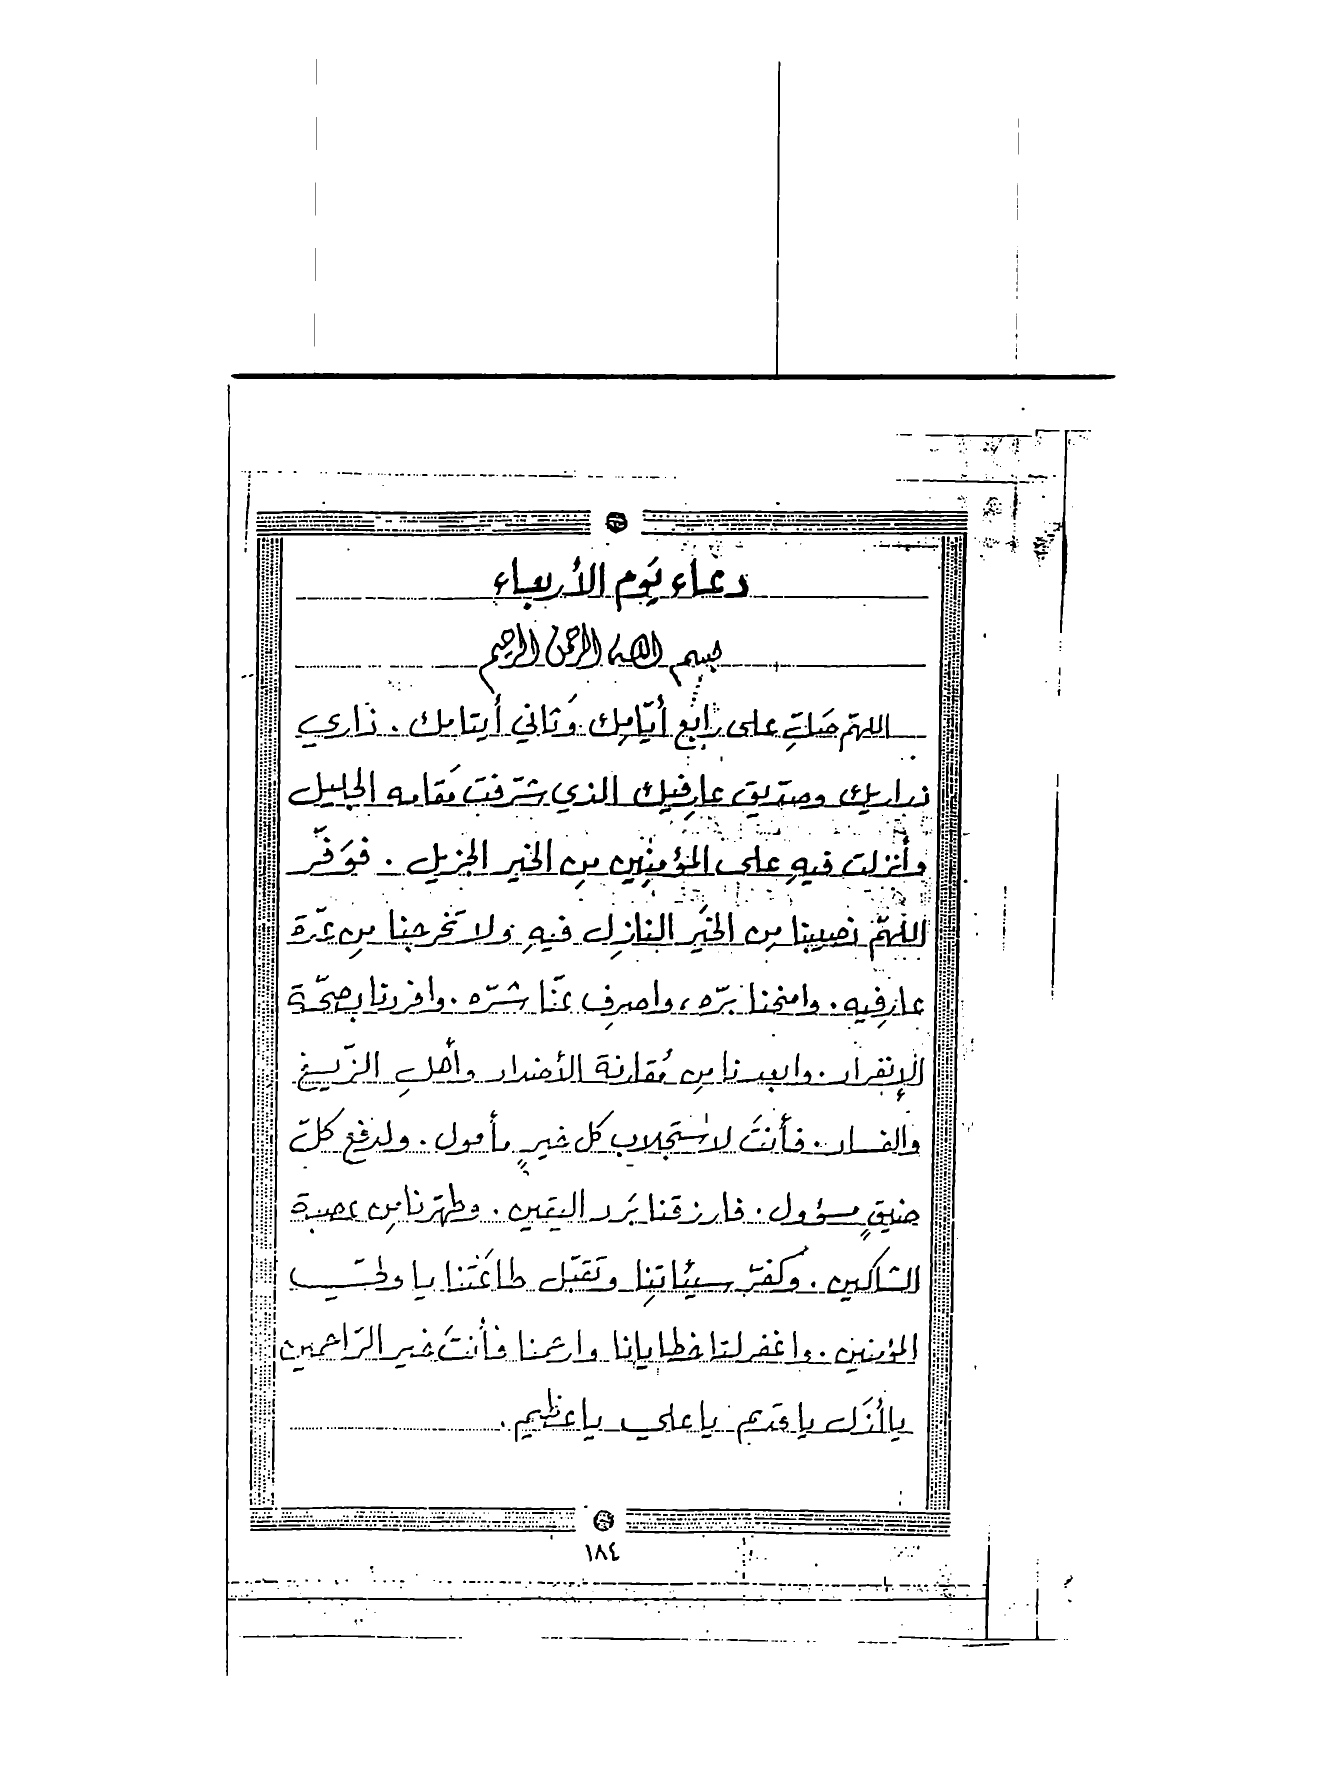 دعاء يَوم الأربعاء
بسم الله الرحمن الرحيم
اللهمّ صَلِّ على رَابع أيّامِك وَثاني أيتامك . ذاري
ذراريك وصدّيق عارفيك الذي شرّفت مَقامه الجليل
وأنزلت فيهِ على المؤمِنِين مِن الخير الجزيل . فوَفّر
اللهمّ نصيبنا مِن الخَير النازِل فيهِ ولا تَخرجنا مِن عدّة
عارفِيه . وامنحنا برّه ، واصرِف عنّا شرّه . وافردنا بصحّة
الإنفراد . وابعدنا مِن مُقارنة الأضداد وأهلِ الزّيغ
والفساد . فأنتَ لاستجلاب كل خيرٍ مأمول . ولدفع كلّ
ضيقٍ مسؤول . فارزقنا بَرد اليقين . وطهّرنا مِن عصبة
الشاكين . وكفّر سيئاتِنا وتَقبّل طاعَتنا يا
المؤمنين . واغفر لنا خطايانا وارحمنا فأنتَ خير الرّاحمين
يا أزَل يا قديم يا علي يا عظيم .
١٨٤